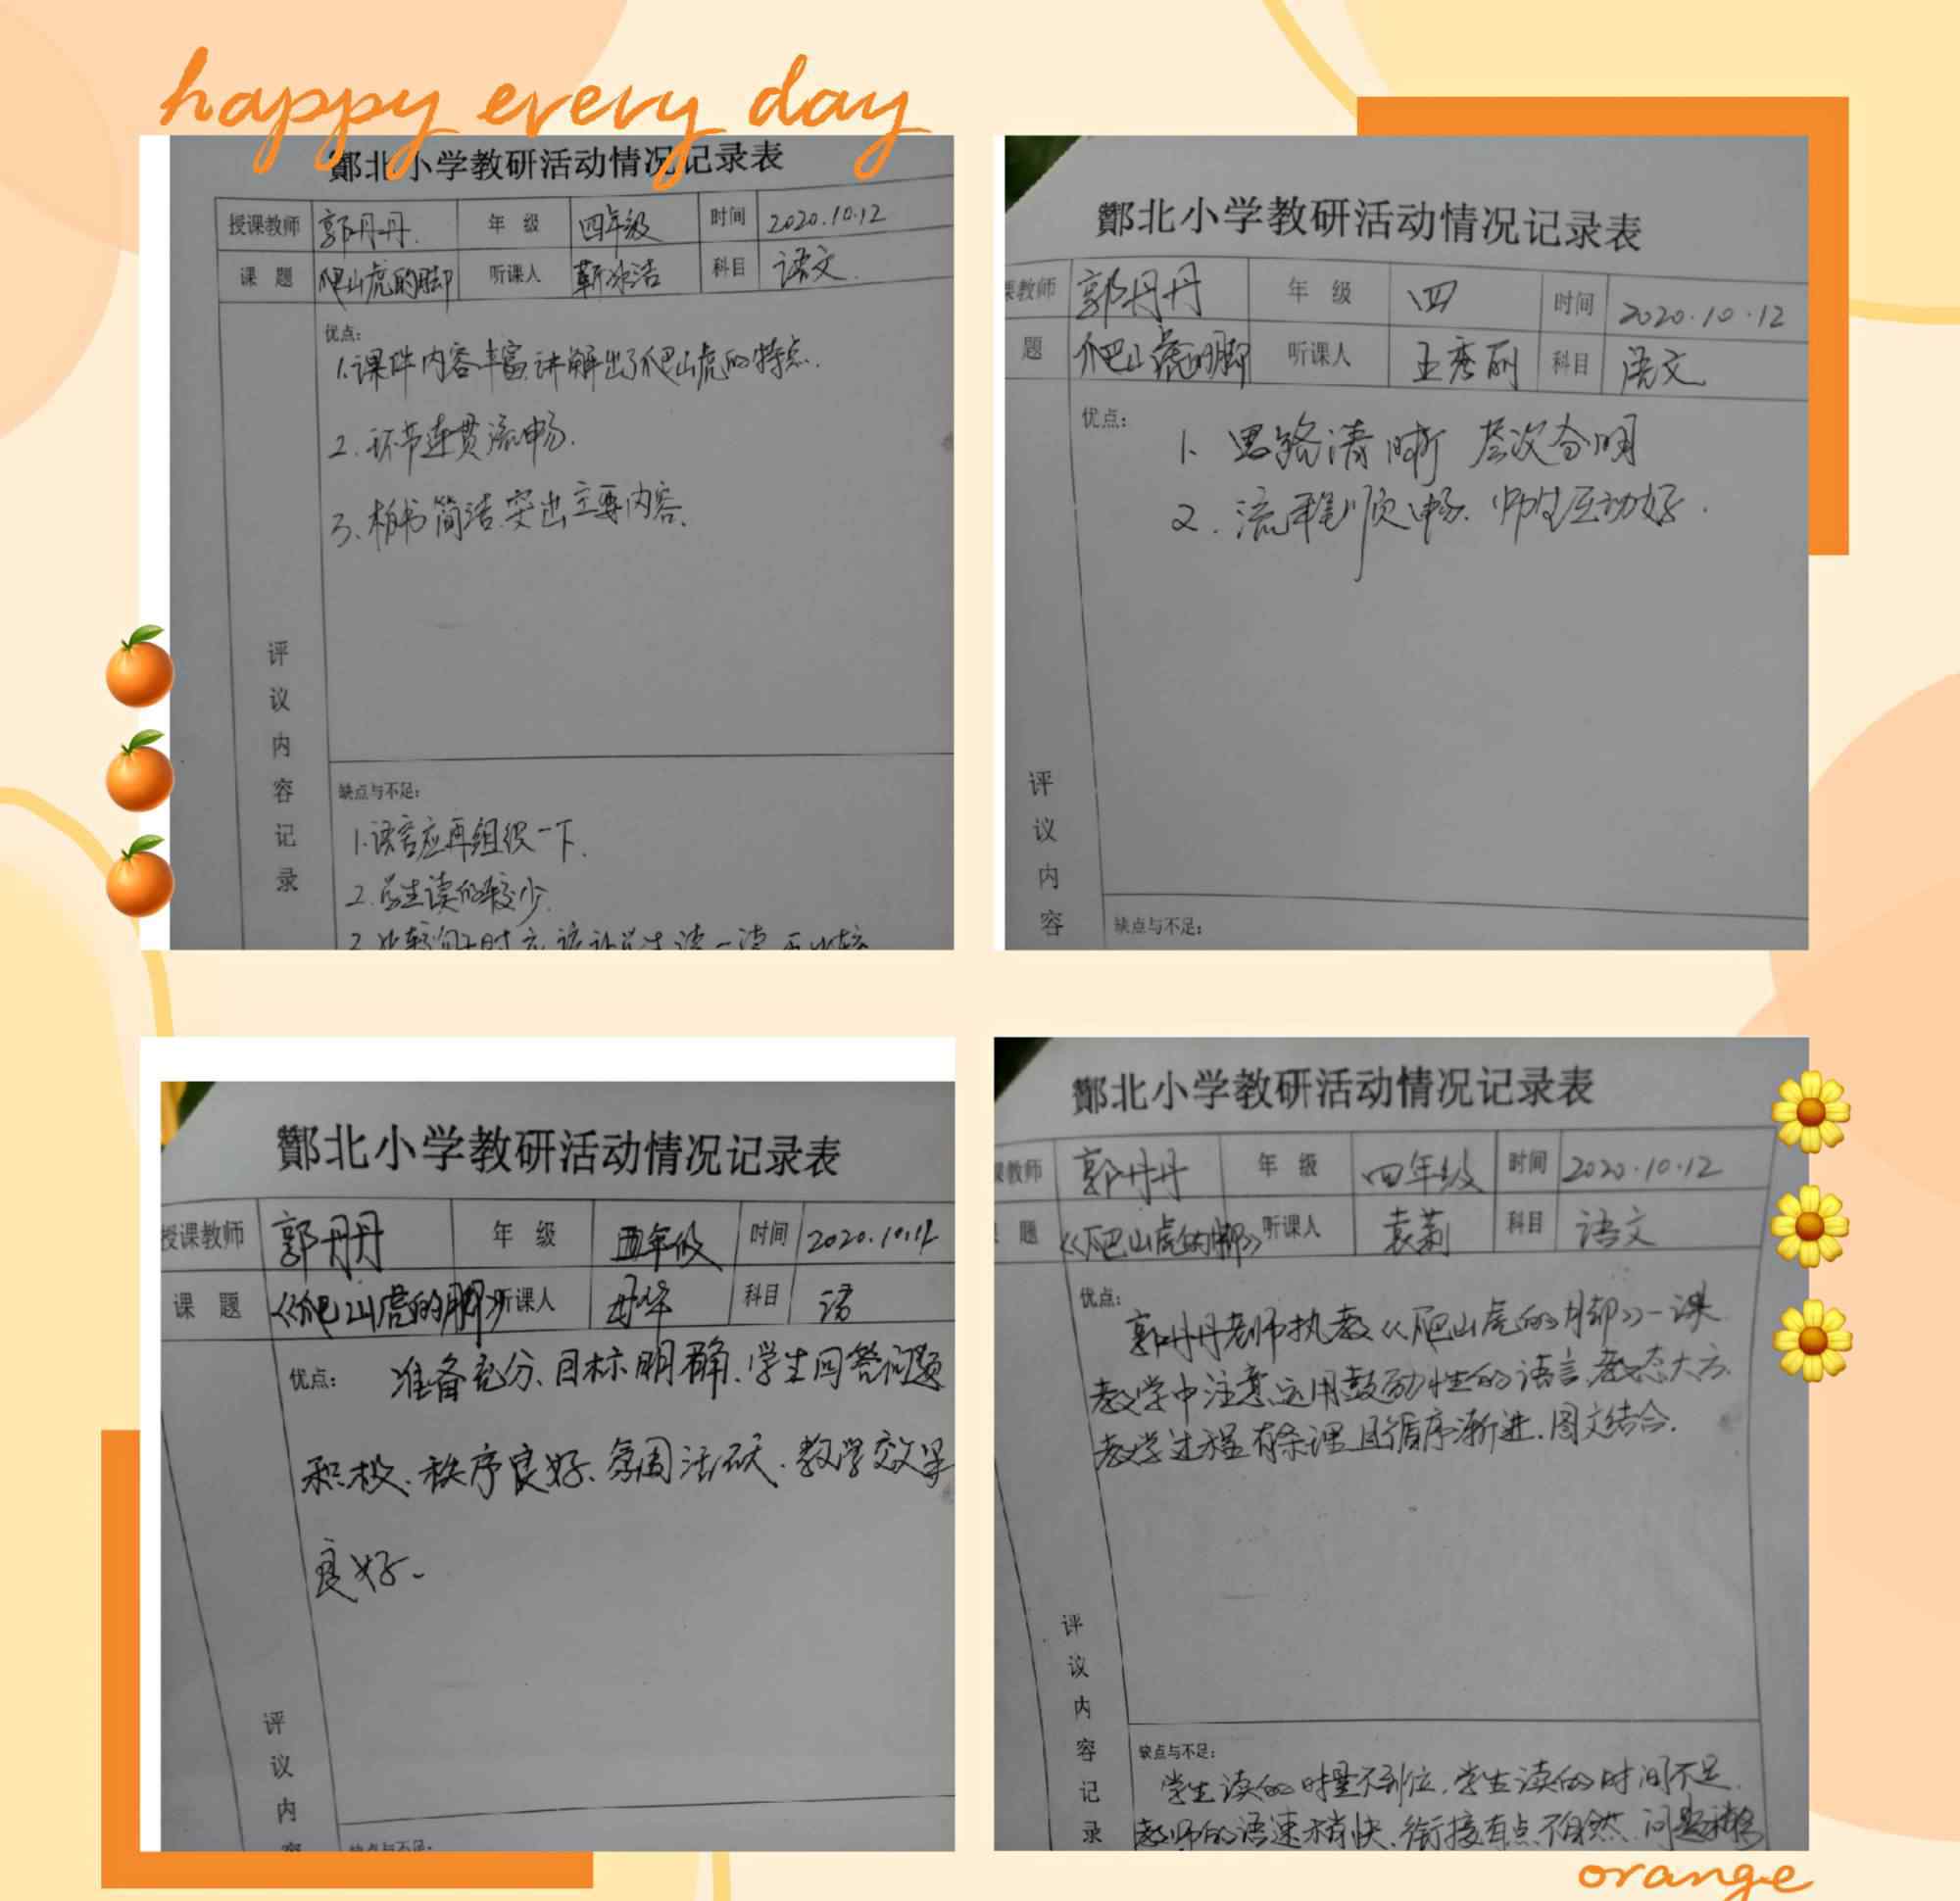 happy every day
酇北小学教研活动情况记录表
授课教师 郭丹丹 年 级 四年级 时间 2020.10.12
课 题 爬山虎的脚 听课人 靳冰洁 科目 语文
优点:
1.课件内容丰富,讲解出了爬山虎的特点.
2.环节连贯流畅.
3.板书简洁,突出主要内容.
评议内容记录
缺点与不足:
1.语言应再组织一下.
2.学生读的较少.
酇北小学教研活动情况记录表
课教师 郭丹丹 年 级 四 时间 2020.10.12
题 爬山虎的脚 听课人 王秀丽 科目 语文
优点:
1. 思路清晰 层次分明
2. 流程顺畅. 师生互动好.
评议内容
缺点与不足:
酇北小学教研活动情况记录表
授课教师 郭丹丹 年 级 四年级 时间 2020.10.12
课 题 《爬山虎的脚》 听课人 科目 语
优点: 准备充分、目标明确、学生回答问题
积极、秩序良好、氛围活跃、教学效果
良好。
评议内容
缺点与不足:
酇北小学教研活动情况记录表
课教师 郭丹丹 年 级 四年级 时间 2020.10.12
题 《爬山虎的脚》 听课人 袁莉 科目 语文
优点:
郭丹丹老师执教《爬山虎的脚》一课
教学中注意运用鼓励性的语言,教态大方.
教学过程有条理且循序渐进.图文结合.
评议内容记录
缺点与不足:
学生读的时量不到位,学生读的时间不足.
教师的语速稍快,衔接有点不自然.问题
orange